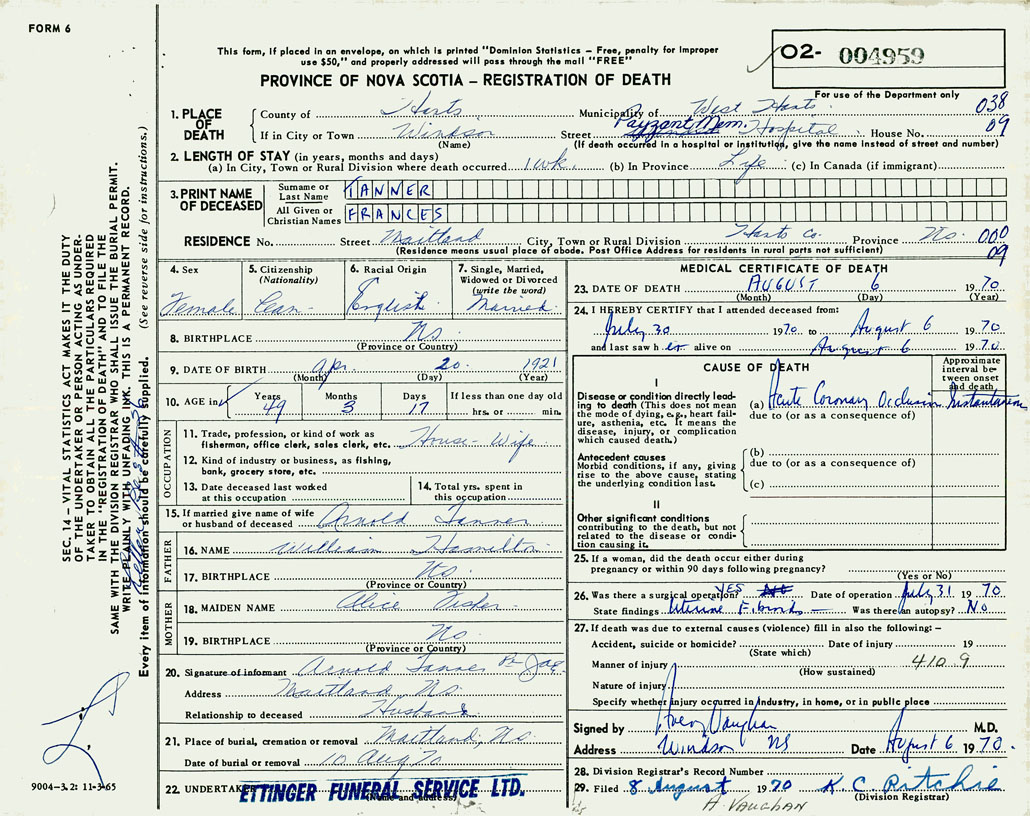 FORM 6
This form, if placed in an envelope, on which is printed "Dominion Statistics – Free, penalty for improper
use $50," and properly addressed will pass through the mail "FREE"
PROVINCE OF NOVA SCOTIA – REGISTRATION OF DEATH
02- 004959
For use of the Department only
038
09
1. PLACE OF DEATH
County of Hants Municipality of West Hants
If in City or Town Windsor Street Payzant Mem. Hospital House No.
(Name) (If death occurred in a hospital or institution, give the name instead of street and number)
2. LENGTH OF STAY (in years, months and days)
(a) In City, Town or Rural Division where death occurred 1 wk (b) In Province Life (c) In Canada (if immigrant)
3. PRINT NAME OF DECEASED
Surname or Last Name TANNER
All Given or Christian Names FRANCES
RESIDENCE No. Street Maitland City, Town or Rural Division Hants Co. Province N.S. 000
(Residence means usual place of abode. Post Office Address for residents in rural parts not sufficient) 09
4. Sex
Female
5. Citizenship
(Nationality)
Can.
6. Racial Origin
English
7. Single, Married,
Widowed or Divorced
(write the word)
Married
8. BIRTHPLACE N.S.
(Province or Country)
9. DATE OF BIRTH Apr. 20 1921
(Month) (Day) (Year)
10. AGE in Years Months Days If less than one day old
49 3 17 hrs. or min.
OCCUPATION
11. Trade, profession, or kind of work as
fisherman, office clerk, sales clerk, etc. House-Wife
12. Kind of industry or business, as fishing,
bank, grocery store, etc.
13. Date deceased last worked
at this occupation
14. Total yrs. spent in
this occupation
15. If married give name of wife
or husband of deceased Arnold Tanner
FATHER
16. NAME William Hamilton
17. BIRTHPLACE N.S.
(Province or Country)
MOTHER
18. MAIDEN NAME Alice Fisher
19. BIRTHPLACE N.S.
(Province or Country)
20. Signature of informant Arnold Tanner
Address Maitland, N.S.
Relationship to deceased Husband
21. Place of burial, cremation or removal Maitland, N.S.
Date of burial or removal 10 Aug 70
22. UNDERTAKER ETTINGER FUNERAL SERVICE LTD.
(Name and address)
MEDICAL CERTIFICATE OF DEATH
23. DATE OF DEATH AUGUST 6 1970
(Month) (Day) (Year)
24. I HEREBY CERTIFY that I attended deceased from:
July 30 1970 to August 6 1970
and last saw her alive on August 6 1970
CAUSE OF DEATH
Approximate
interval be-
tween onset
and death
I
Disease or condition directly lead-
ing to death (This does not mean
the mode of dying, e.g., heart fail-
ure, asthenia, etc. It means the
disease, injury, or complication
which caused death.)
(a) Acute Coronary Occlusion Instantaneous
due to (or as a consequence of)
Antecedent causes
Morbid conditions, if any, giving
rise to the above cause, stating
the underlying condition last.
(b)
due to (or as a consequence of)
(c)
II
Other significant conditions
contributing to the death, but not
related to the disease or condi-
tion causing it.
25. If a woman, did the death occur either during
pregnancy or within 90 days following pregnancy?
(Yes or No)
26. Was there a surgical operation? YES Date of operation July 31 1970
State findings Uterine Fibroids – Was there an autopsy? No
27. If death was due to external causes (violence) fill in also the following: –
Accident, suicide or homicide? Date of injury 19
(State which)
Manner of injury 410 9
(How sustained)
Nature of injury
Specify whether injury occurred in industry, in home, or in public place
Signed by Vaughan M.D.
Address Windsor NS Date August 6 1970.
28. Division Registrar's Record Number
29. Filed 8 August 1970 K. C. Ritchie
(Division Registrar)
H. VAUGHAN
SEC. 14 – VITAL STATISTICS ACT MAKES IT THE DUTY
OF THE UNDERTAKER OR PERSON ACTING AS UNDER-
TAKER TO OBTAIN ALL THE PARTICULARS REQUIRED
IN THE "REGISTRATION OF DEATH" AND TO FILE THE
SAME WITH THE DIVISION REGISTRAR WHO SHALL ISSUE THE BURIAL PERMIT.
WRITE PLAINLY WITH UNFADING INK. THIS IS A PERMANENT RECORD.
Every item of information should be carefully supplied. (See reverse side for instructions.)
9004–3.2: 11-3-65